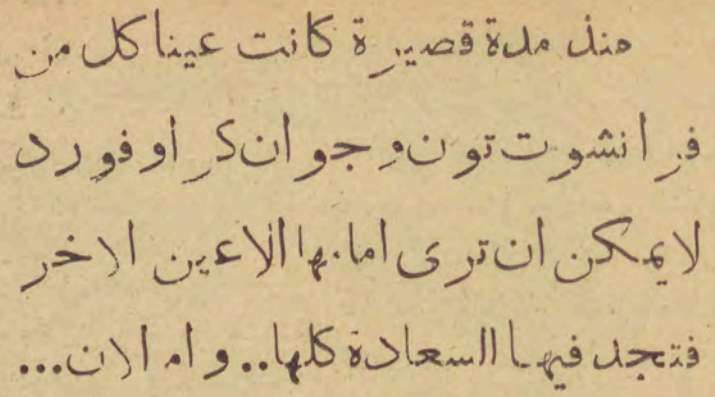 منذ مدة قصيرة كانت عينا كل من
فرانشوت تون وجوان كراوفورد
لا يمكن ان ترى امامها الاعين الاخر
فتجد فيها السعادة كلها.. وام الان...